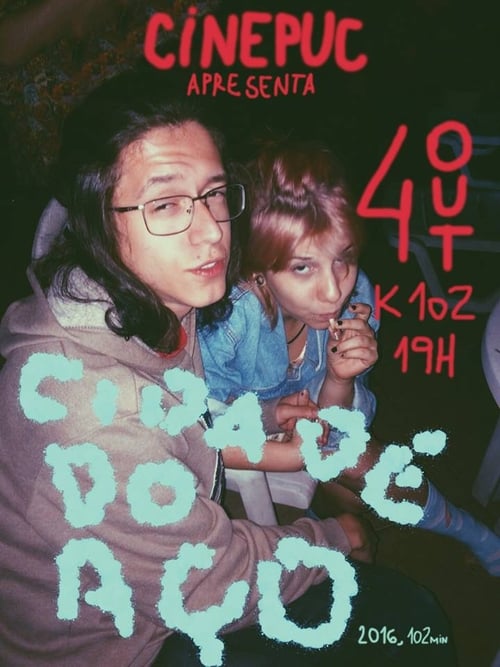 CINEPUC
APRESENTA
4 OUT
K102
19H
CIDADE
DO
AÇO
2016, 102MIN